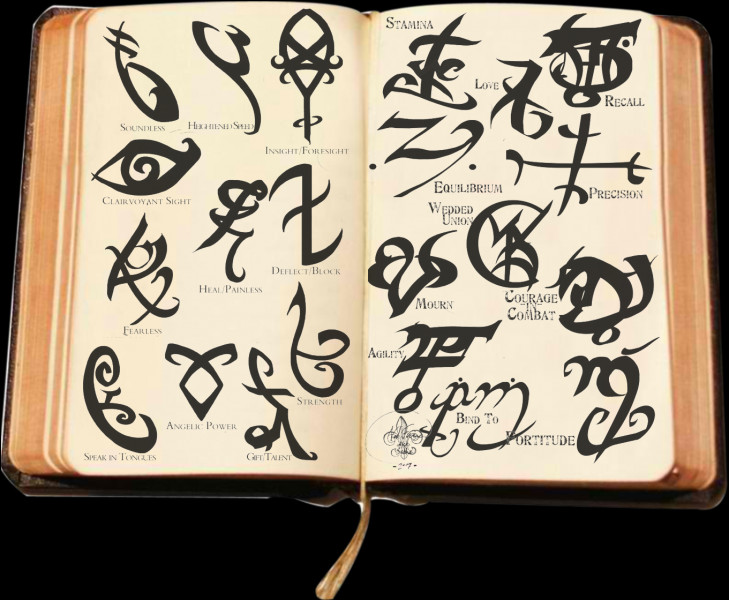 Soundless
Heightened Speed
Insight/Foresight
Clairvoyant Sight
Heal/Painless
Deflect/Block
Fearless
Strength
Angelic Power
Speak in Tongues
Gift/Talent
Stamina
Love
Recall
Equilibrium
Precision
Wedded
Union
Mourn
Courage
-in-
Combat
Agility
Bind To
Fortitude